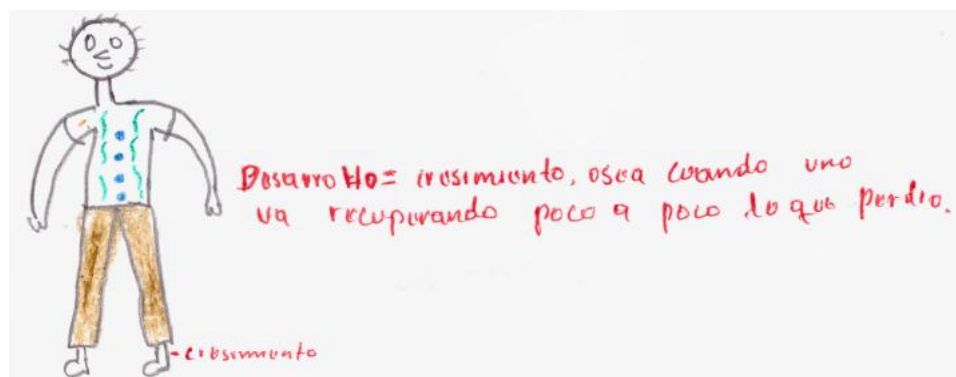 Desarrollo = cresimiento, osea cuando uno
va recuperando poco a poco lo que perdio.
- cresimiento